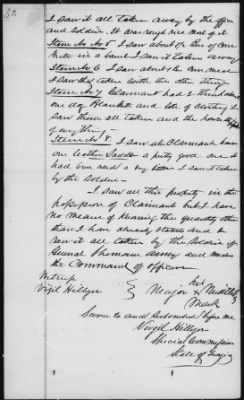 52
I saw it all taken away by the officers
and Soldiers. It was rough rice most of it
Item No 5 I saw about
in a barrel I saw it taken away
Item No 6 I saw about the corn meal
I saw that taken with the other things
Item No 7 Claimant had I think
one dog Blankets and lots of clothing I
saw them all taken and the house
of everything
Item No 8. I saw at Claimants house
one leather Saddle a pretty good one it
had been used a very I saw it taken
by the Soldiers
I saw all this property in the
possession of Claimant but I have
no means of knowing the quantity other
than I have already stated and I
saw it all taken by the Soldiers of
General Shermans Army and under
the Command of officers
Witness
Virgil Hillyer
his
Major X
Mark
Sworn to and subscribed before me
Virgil Hillyer
Special Commissioner
State of Georgia